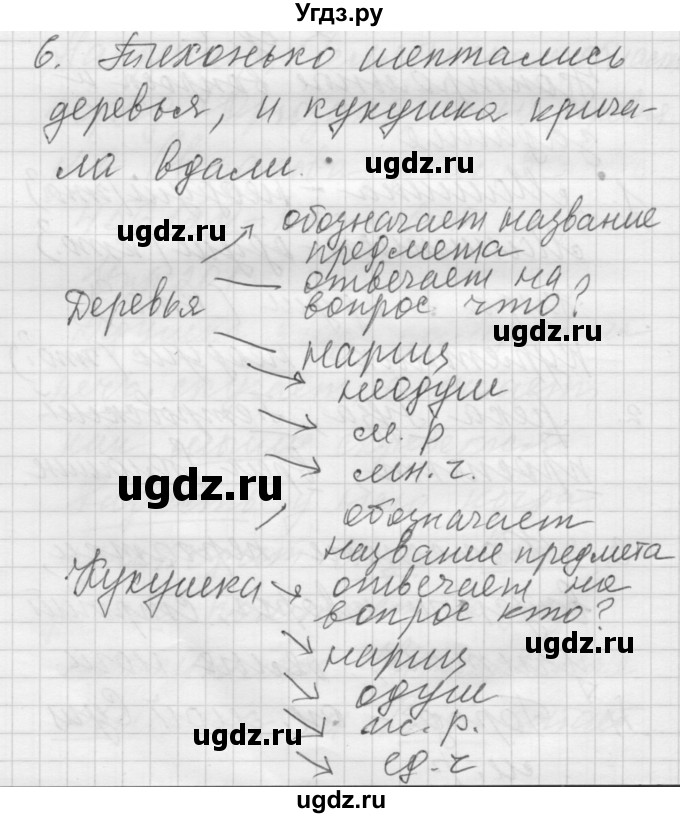 Угдз.ру
6. Тихонько шептались
деревья, и кукушка крича-
ла вдали.
ugdz.ru
ugdz.ru
обозначает название
предмета
отвечает на
Деревья
вопрос что?
ugdz.ru
нариц
неодуш
м. р
ugdz.ru
мн. ч.
обозначает
название предмета
Кукушка
отвечает на
вопрос кто?
ugdz.ru
нариц
одуш
ж. р.
ugdz.ru
ед. ч
ugdz.ru